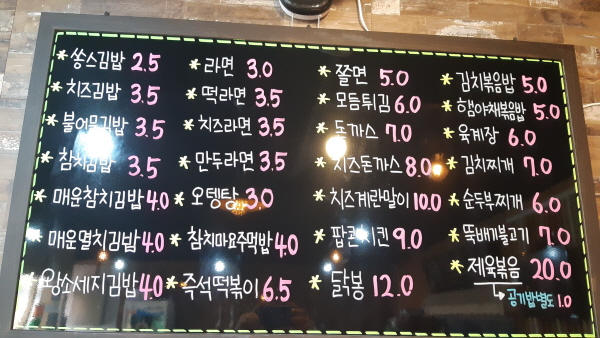 * 쏭스김밥 2.5
* 치즈김밥 3.5
* 불어묵김밥 3.5
* 참치김밥 3.5
* 매운참치김밥 4.0
* 매운멸치김밥 4.0
* 왕소세지김밥 4.0
* 라면 3.0
* 떡라면 3.5
* 치즈라면 3.5
* 만두라면 3.5
* 오뎅탕 3.0
* 참치마요주먹밥 4.0
* 즉석떡볶이 6.5
* 쫄면 5.0
* 모듬튀김 6.0
* 돈까스 7.0
* 치즈돈까스 8.0
* 치즈계란말이 10.0
* 팝콘치킨 9.0
* 닭봉 12.0
* 김치볶음밥 5.0
* 햄야채볶음밥 5.0
* 육계장 6.0
* 김치찌개 7.0
* 순두부찌개 6.0
* 뚝배기불고기 7.0
* 제육볶음 20.0
→ 공기밥별도 1.0